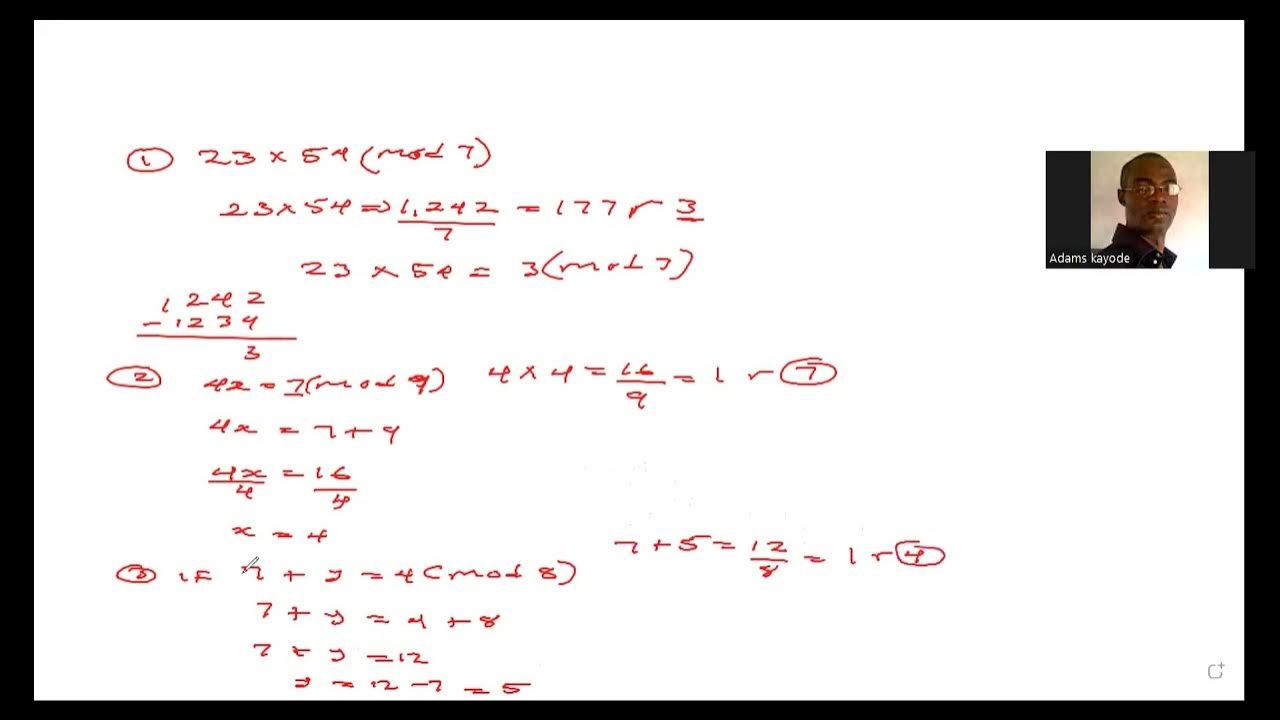 ① 23 × 54 (mod 7)
23 × 54 ⇒ 1,242/7 = 177 r 3
23 × 54 = 3 (mod 7)
1242
- 1234
3
② 4x = 7 (mod 9)
4 × 4 = 16/9 = 1 r ⑦
4x = 7 + 9
4x/4 = 16/4
x = 4
③ if 7 + y = 4 (mod 8)
7 + 5 = 12/8 = 1 r ④
7 + y = 4 + 8
7 + y = 12
y = 12 - 7 = 5
Adams kayode